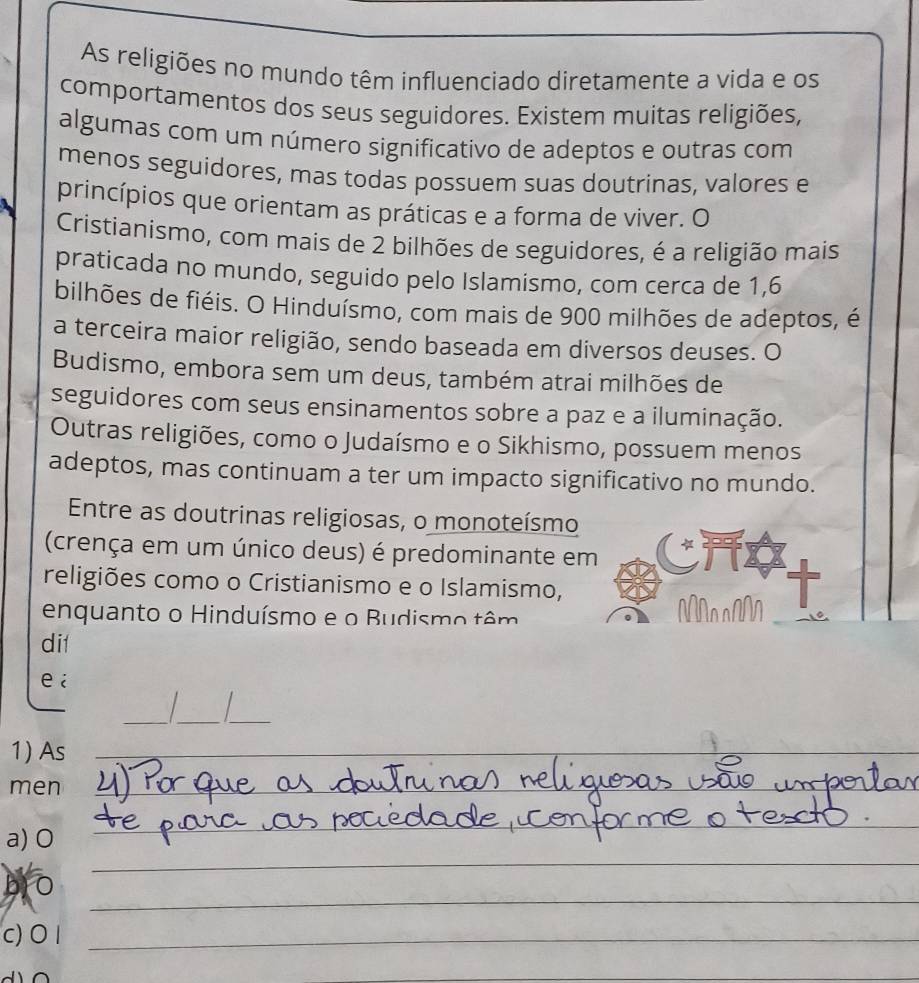 As religiões no mundo têm influenciado diretamente a vida e os
comportamentos dos seus seguidores. Existem muitas religiões,
algumas com um número significativo de adeptos e outras com
menos seguidores, mas todas possuem suas doutrinas, valores e
princípios que orientam as práticas e a forma de viver. O
Cristianismo, com mais de 2 bilhões de seguidores, é a religião mais
praticada no mundo, seguido pelo Islamismo, com cerca de 1,6
bilhões de fiéis. O Hinduísmo, com mais de 900 milhões de adeptos, é
a terceira maior religião, sendo baseada em diversos deuses. O
Budismo, embora sem um deus, também atrai milhões de
seguidores com seus ensinamentos sobre a paz e a iluminação.
Outras religiões, como o Judaísmo e o Sikhismo, possuem menos
adeptos, mas continuam a ter um impacto significativo no mundo.
Entre as doutrinas religiosas, o monoteísmo
(crença em um único deus) é predominante em
religiões como o Cristianismo e o Islamismo,
enquanto o Hinduísmo e o Budismo têm
dif
e
1) As
men
4) Por que as doutrinas religiosas são importan
te para as sociedade, conforme o texto.
a) O
b) O
c) O
d) O